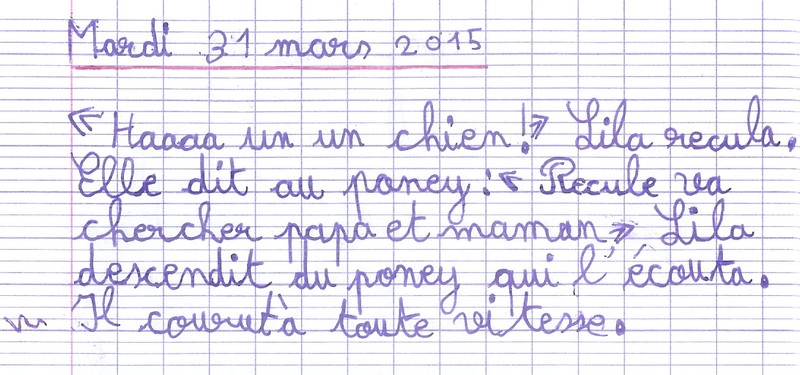 Mardi 31 mars 2015
« Haaaa un un chien ! » Lila recula.
Elle dit au poney : « Recule va
chercher papa et maman » Lila
descendit du poney qui l'écouta.
Il courut à toute vitesse.